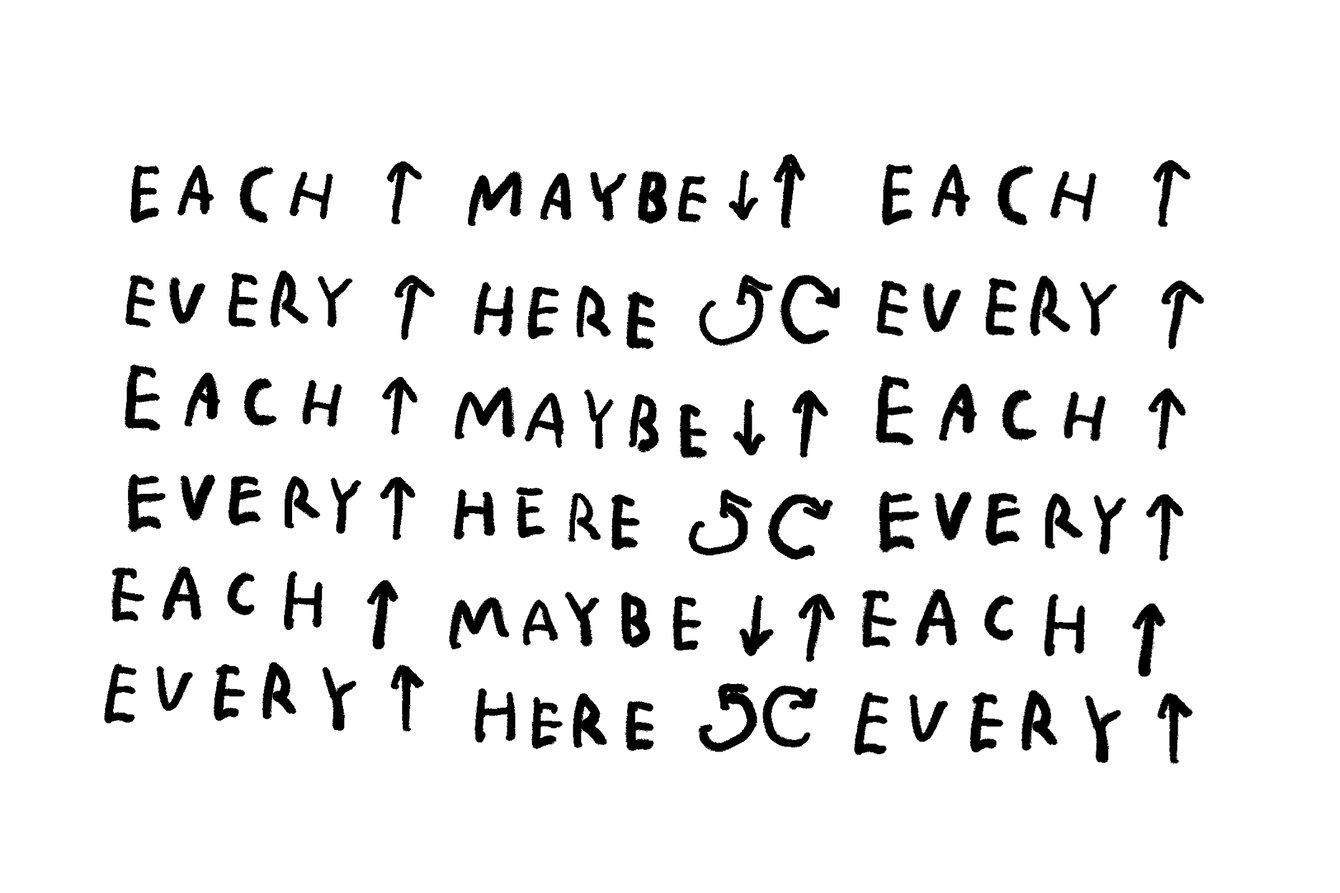 EACH ↑ MAYBE ↓↑ EACH ↑
EVERY ↑ HERE ↺↻ EVERY ↑
EACH ↑ MAYBE ↓↑ EACH ↑
EVERY ↑ HERE ↺↻ EVERY ↑
EACH ↑ MAYBE ↓↑ EACH ↑
EVERY ↑ HERE ↺↻ EVERY ↑